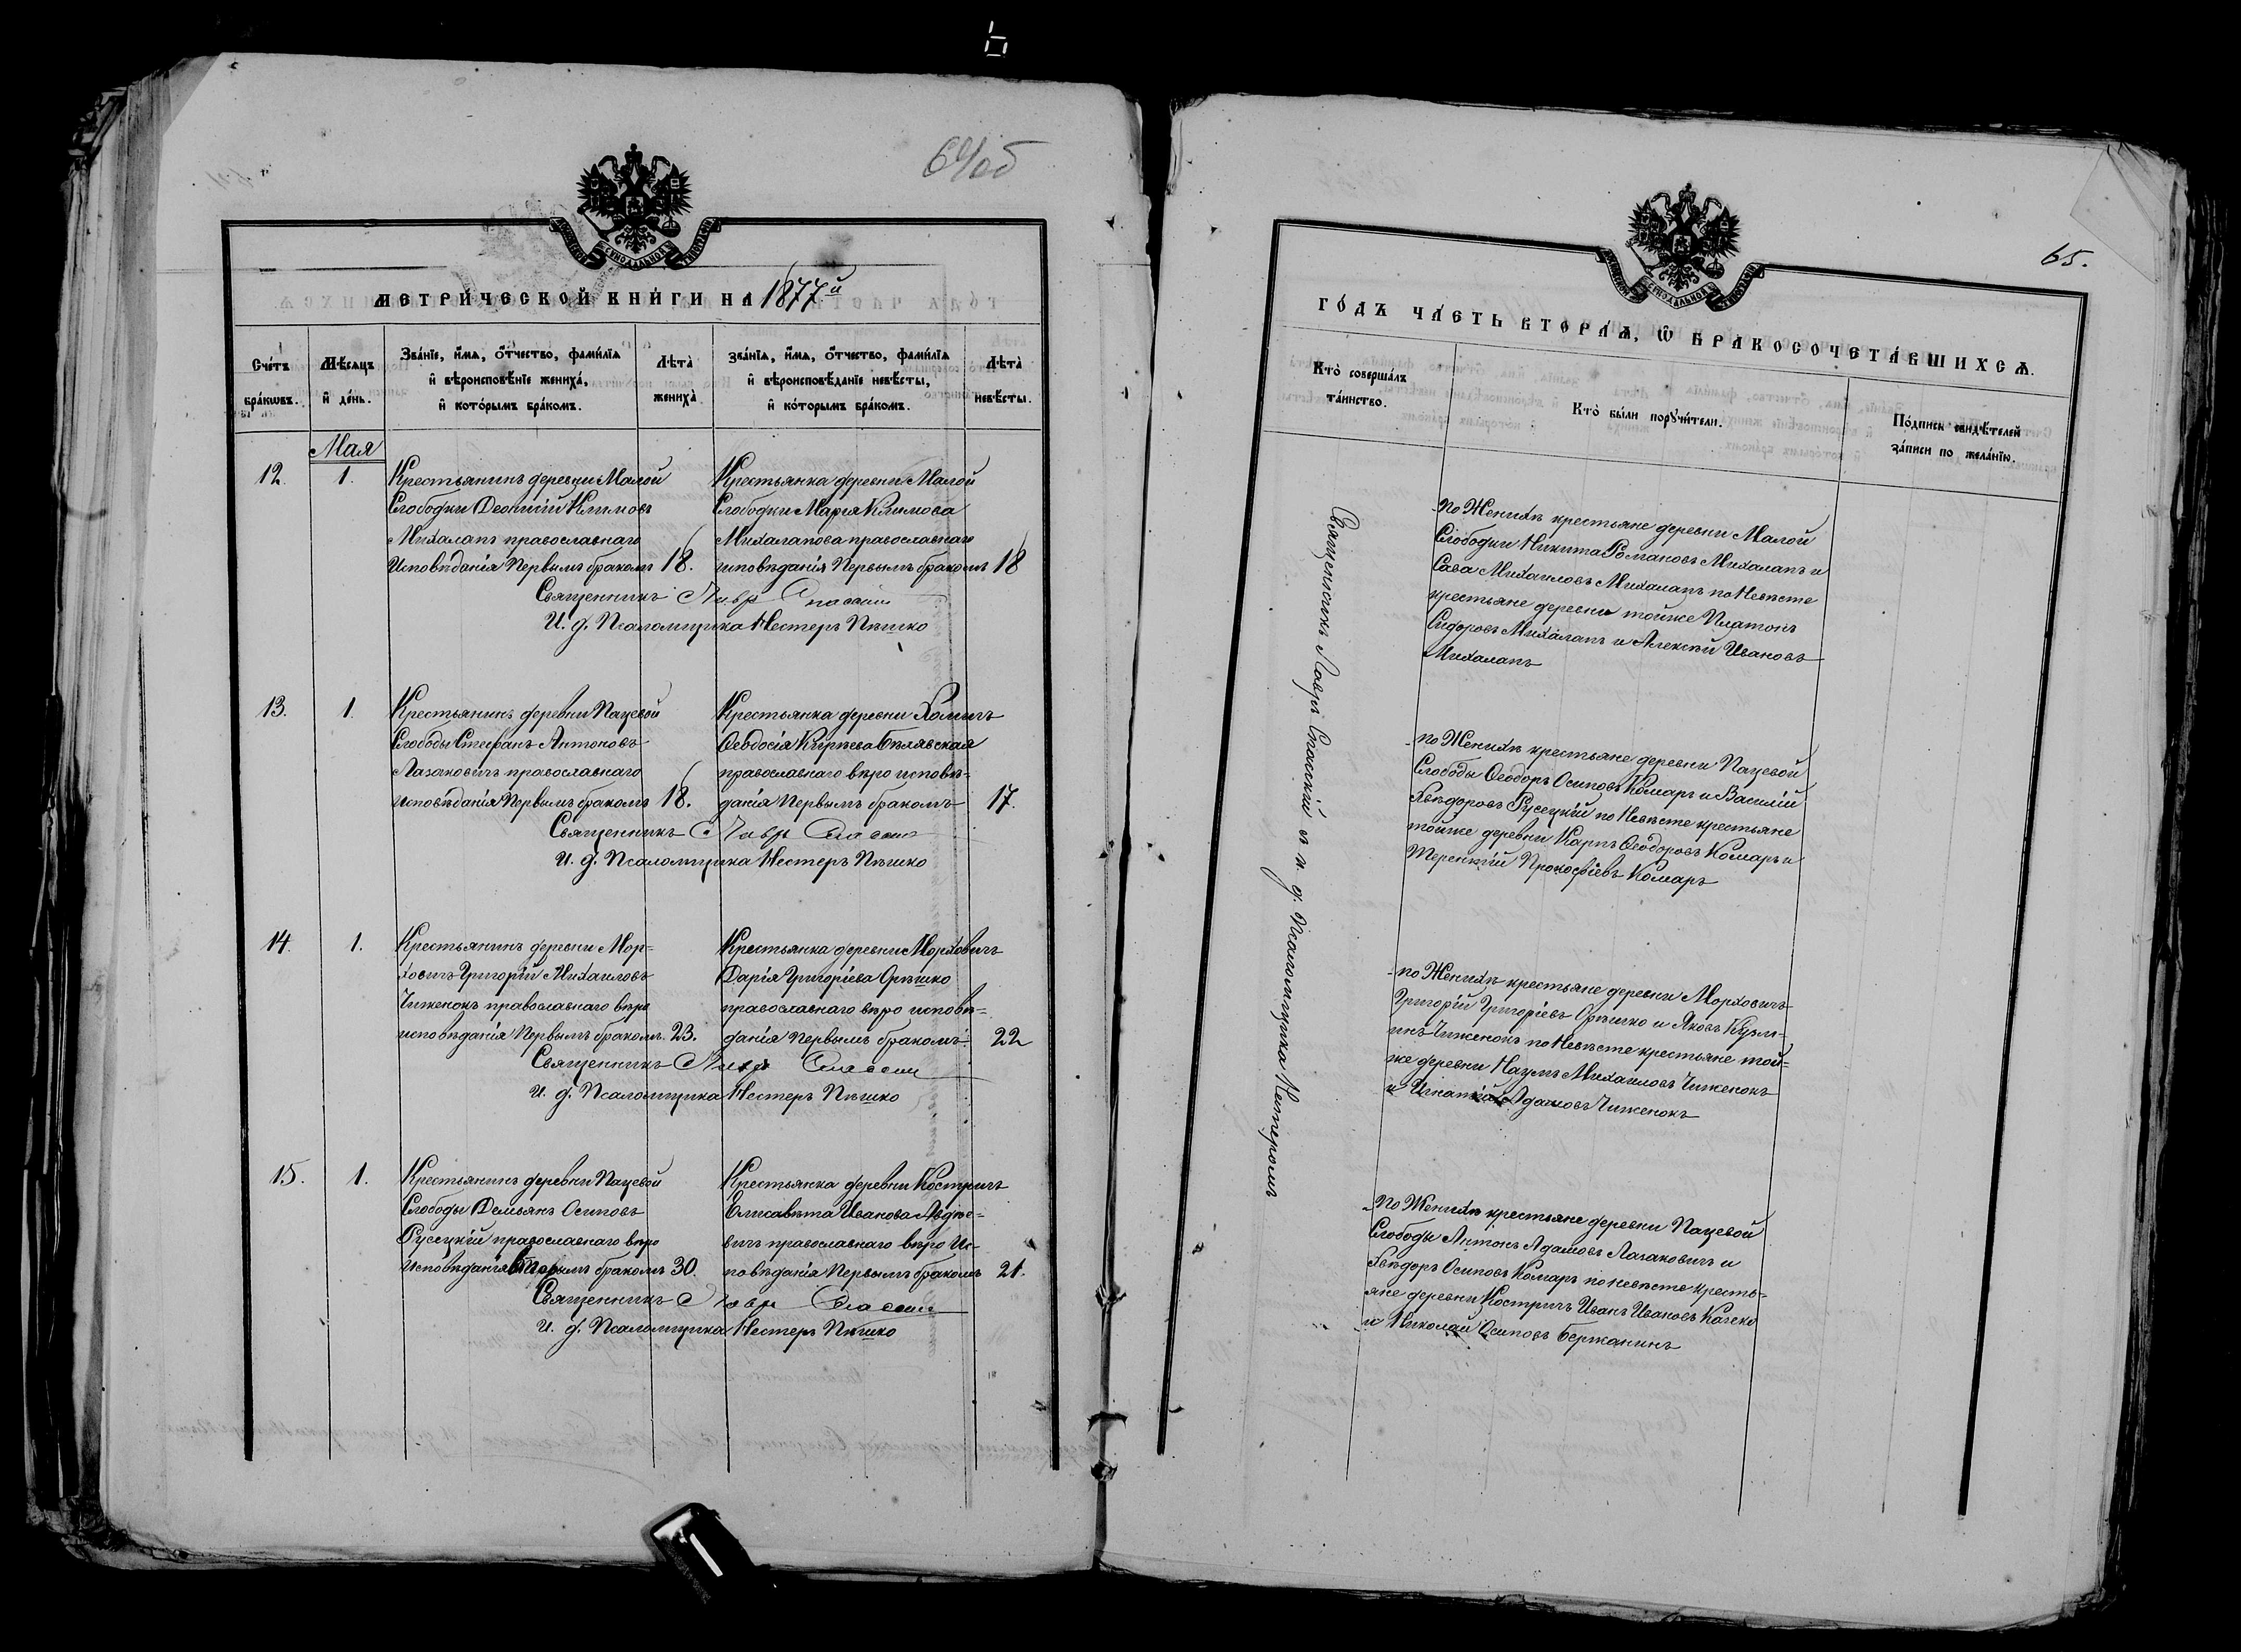 64об
МЕТРИ́ЧЕСКОЙ КНИ́ГИ НА 1877й
Сче́тъ бра́кѡвъ.
Мѣ́сѧцъ и҆ де́нь.
Зва́нїе, и҆́мѧ, ѻ҆́тчество, фами́лїѧ и҆ вѣроисповѣ́нїе жениха̀, и҆ кото́рымъ бра́комъ.
Лѣта̀ жениха̀
зва́нїѧ, и҆́мѧ, ѻ҆́тчество, фами́лїѧ и҆ вѣроисповѣ́данїе невѣ́сты, и҆ ко́торымъ бра́комъ.
Лѣта̀ невѣ́сты.
Мая
12. 1.
Крестьянинъ деревни Малой
Слободки Леонтій Климовъ
Михалапъ православнаго
Исповѣданія Первымъ бракомъ 18.
Крестьянка деревни Малой
Слободки Марія Климова
Михалапова православнаго
исповѣданія Первымъ бракомъ 18
Священникъ Лавръ Спасскій
И. д. Псаломщика Нестеръ Пѣшко
13. 1.
Крестьянинъ деревни Пацевой
Слободы Стефанъ Антоновъ
Лазаковичъ православнаго
исповѣданія Первымъ бракомъ 18.
Крестьянка деревни Хомичъ
Ѳевдосія Киріева Бѣлявская
православнаго вѣро исповѣ=
данія Первымъ бракомъ 17.
Священникъ Лавръ Спасскій
И. д. Псаломщика Нестеръ Пѣшко
14. 1.
Крестьянинъ деревни Мор=
ховичъ Григорій Михаиловъ
Чиженокъ православнаго вѣро
исповѣданія Первымъ бракомъ. 23.
Крестьянка деревни Морховичъ
Дарія Григоріева Орѣшко
православнаго вѣро исповѣ=
данія Первымъ бракомъ. 22
Священникъ Лавръ Спасскій
И. д. Псаломщика Нестеръ Пѣшко
15. 1.
Крестьянинъ деревни Пацевой
Слободы Демьянъ Осиповъ
Русецкій православнаго вѣро
исповѣданія Вторымъ бракомъ 30.
Крестьянка деревни Костричъ
Елисавѣта Иванова Авдѣе=
вичъ православнаго вѣро Ис=
повѣданія Первымъ бракомъ 21.
Священникъ Лавръ Спасскій
И. д. Псаломщика Нестеръ Пѣшко
65.
ГО́ДЪ ЧА́СТЬ ВТОРА́Ѧ, Ѡ҆ БРАКОСОЧЕТА́ВШИХСѦ.
Кто̀ соверша́лъ та́инство.
Кто̀ бы́ли порꙋчи́тели.
По́дписи свидѣ́телей за́писи по жела́нїю.
Священникъ Лавръ Спасскій съ и. д. Псаломщика Нестеромъ
по Женихѣ крестьяне деревни Малой
Слободки Никита Романовъ Михалапъ и
Сава Михаиловъ Михалапъ по Невѣсте
крестьяне деревни тойже Платонъ
Сидоровъ Михалапъ и Алексѣй Ивановъ
Михалапъ
по Женихѣ крестьяне деревни Пацевой
Слободы Ѳеодоръ Осиповъ Комаръ и Василій
Хвѣдоровъ Русецкій по Невѣсте крестьяне
тойже деревни Карпъ Ѳеодоровъ Комаръ и
Терентій Прокофіевъ Комаръ
по Женихѣ крестьяне деревни Морховичъ
Григорій Григоріевъ Орѣшко и Яковъ Кузм-
инъ Чиженокъ по Невѣсте крестьяне той=
же деревни Наумъ Михаиловъ Чиженокъ
и Игнатій Адамовъ Чиженокъ
по Женихѣ крестьяне деревни Пацевой
Слободы Антонъ Адамовъ Лазаковичъ и
Хвѣдоръ Осиповъ Комаръ по невѣсте кресть=
яне деревни Костричъ Иванъ Ивановъ Качеко
и Николай Осиповъ Бержанинъ